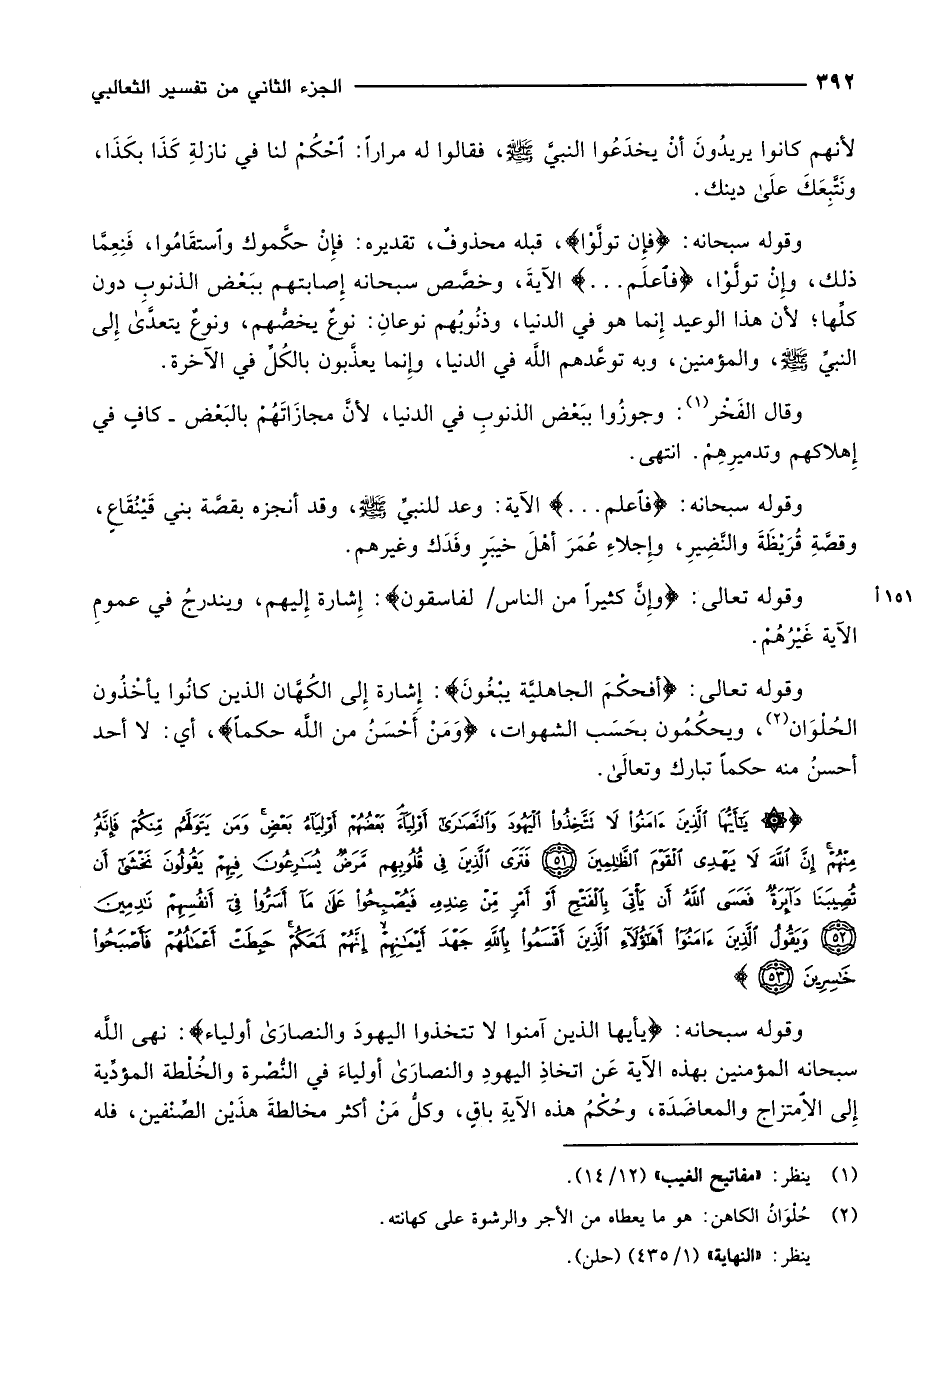 ٣٩٢ الجزء الثاني من تفسير الثعالبي
لأنهم كانوا يريدُونَ أنْ يخدَعُوا النبيَّ ﷺ، فقالوا له مراراً: ٱحْكُمْ لنا في نازلةِ كَذَا بكَذَا،
ونَتَّبِعَكَ علَىٰ دينك.
وقوله سبحانه: ﴿فإِن تولَّوْا﴾، قبله محذوفٌ، تقديره: فإِنْ حكَّموك وٱستقَامُوا، فَنِعِمَّا
ذلك، وإِنْ تولَّوْا، ﴿فٱعلَم...﴾ الآيةَ، وخصَّص سبحانه إِصابتهم ببَعْض الذنوبِ دون
كلِّها؛ لأن هذا الوعيد إِنما هو في الدنيا، وذنُوبُهم نوعانِ: نوعٌ يخصُّهم، ونوعٌ يتعدَّىٰ إِلى
النبيِّ ﷺ، والمؤمنين، وبه توعَّدهم اللَّه في الدنيا، وإِنما يعذَّبون بالكُلِّ في الآخرة.
وقال الفَخْر(١): وجوزُوا ببَعْض الذنوبِ في الدنيا، لأنَّ مجازَاتَهُمْ بالبَعْض ـ كافٍ في
إِهلاكهم وتدميرِهِمْ. انتهى.
وقوله سبحانه: ﴿فٱعلم...﴾ الآية: وعد للنبيِّ ﷺ، وقد أنجزه بقصَّة بني قَيْنُقَاعٍ،
وقصَّةِ قُرَيْظَةَ والنَّضِيرِ، وإِجلاءِ عُمَرَ أهْلَ خيبَرٍ وفَدَك وغيرهم.
وقوله تعالى: ﴿وإِنَّ كثيراً من الناس/ لفاسقون﴾: إِشارة إِليهم، ويندرجُ في عمومِ ١٥١أ
الآية غَيْرُهُمْ.
وقوله تعالى: ﴿أفحكْمَ الجاهليَّة يبْغُونَ﴾: إِشارة إِلى الكُهَّان الذين كانُوا يأخْذُون
الحُلْوَان(٢)، ويحكُمُون بحَسَب الشهوات، ﴿وَمَنْ أَحْسَنُ من اللَّه حكماً﴾، أي: لا أحد
أحسنُ منه حكماً تبارك وتعالَىٰ.
﴿۞ يَٰٓأَيُّهَا ٱلَّذِينَ ءَامَنُوا۟ لَا تَتَّخِذُوا۟ ٱلْيَهُودَ وَٱلنَّصَٰرَىٰٓ أَوْلِيَآءَۘ بَعْضُهُمْ أَوْلِيَآءُ بَعْضٍۚ وَمَن يَتَوَلَّهُم مِّنكُمْ فَإِنَّهُۥ
مِنْهُمْۗ إِنَّ ٱللَّهَ لَا يَهْدِى ٱلْقَوْمَ ٱلظَّٰلِمِينَ ٥١ فَتَرَى ٱلَّذِينَ فِى قُلُوبِهِم مَّرَضٌ يُسَٰرِعُونَ فِيهِمْ يَقُولُونَ نَخْشَىٰٓ أَن
تُصِيبَنَا دَآئِرَةٌۚ فَعَسَى ٱللَّهُ أَن يَأْتِىَ بِٱلْفَتْحِ أَوْ أَمْرٍ مِّنْ عِندِهِۦ فَيُصْبِحُوا۟ عَلَىٰ مَآ أَسَرُّوا۟ فِىٓ أَنفُسِهِمْ نَٰدِمِينَ
٥٢ وَيَقُولُ ٱلَّذِينَ ءَامَنُوٓا۟ أَهَٰٓؤُلَآءِ ٱلَّذِينَ أَقْسَمُوا۟ بِٱللَّهِ جَهْدَ أَيْمَٰنِهِمْۙ إِنَّهُمْ لَمَعَكُمْۚ حَبِطَتْ أَعْمَٰلُهُمْ فَأَصْبَحُوا۟
خَٰسِرِينَ ٥٣ ﴾
وقوله سبحانه: ﴿يأيها الذين آمنوا لا تتخذوا اليهودَ والنصارَىٰ أولياء﴾: نهى اللَّه
سبحانه المؤمنين بهذه الآية عَن اتخاذِ اليهودِ والنصارَىٰ أولياءَ في النُّصْرة والخُلْطة المؤدِّية
إِلى الاِمتزاج والمعاضَدَة، وحُكْمُ هذه الآيةِ باقٍ، وكلُّ مَنْ أكثر مخالطةَ هذَيْن الصِّنْفين، فله
(١) ينظر: «مفاتيح الغيب» (١٢/ ١٤).
(٢) حُلْوَانُ الكاهن: هو ما يعطاه من الأجر والرشوة على كهانته.
ينظر: «النهاية» (١/ ٤٣٥) (حلن).